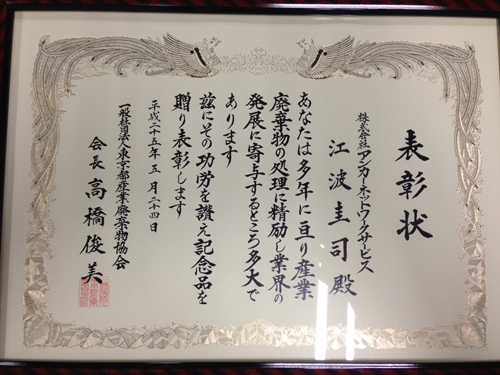 表彰状
株式会社アンカーネットワークサービス
江波圭司殿
あなたは多年に亘り産業
廃棄物の処理に精励し業界の
発展に寄与するところ多大で
あります
茲にその功労を讃え記念品を
贈り表彰します
平成二十五年五月二十四日
一般社団法人東京都産業廃棄物協会
会長 高橋俊美